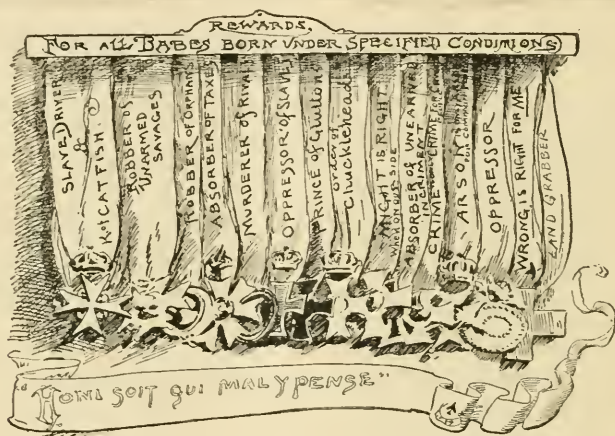 REWARDS,
FOR ALL BABES BORN UNDER SPECIFIED CONDITIONS
SLAVE DRIVER
&
K of CATFISH.
ROBBER OF
UNARMED
SAVAGES
ROBBER OF ORPHANS
ABSORBER OF TAXES
MURDERER OF RIVAL
OPPRESSOR OF SLAVES
PRINCE OF
ORDER OF
Chuckleheads
MIGHT IS RIGHT
WHEN ON OUR SIDE
ABSORBER OF UNEARNED
INCRIMENT
CRIME
ARSON
OPPRESSOR
WRONG IS RIGHT FOR ME
LAND GRABBER
"HONI SOIT QUI MAL Y PENSE"